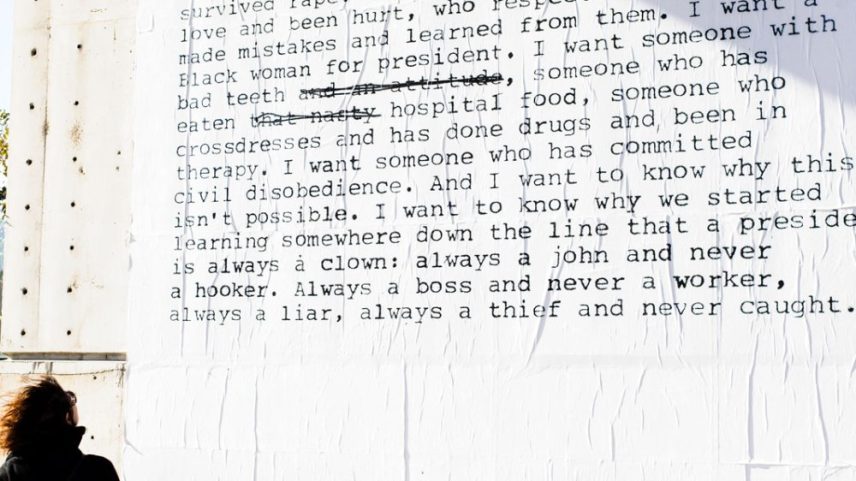 survived rape,
love and been hurt, who respec
made mistakes and learned from them. I want a
Black woman for president. I want someone with
bad teeth and an attitude, someone who has
eaten that nasty hospital food, someone who
crossdresses and has done drugs and been in
therapy. I want someone who has committed
civil disobedience. And I want to know why this
isn't possible. I want to know why we started
learning somewhere down the line that a preside
is always a clown: always a john and never
a hooker. Always a boss and never a worker,
always a liar, always a thief and never caught.